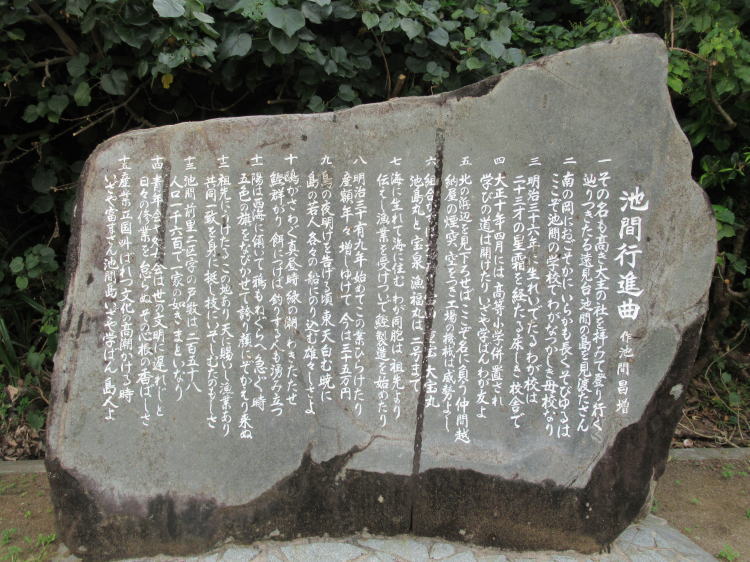 池間行進曲
作 池間昌増
一 その名も高き大主の社を拝みて登り行く
辿りつきたる遠見台池間の島を見渡たさん
二 南の岡におごそかにいらかも長くそびゆるは
ここぞ池間の学校でわがなつかしき母校なり
三 明治三十六年に生れいでたるわが校は
二十三才の星霜を経たる床しき校舎で
四 大正十年四月には高等小学併置され
学びの道は開けたりいざや学ばんわが友よ
五 北の浜辺を見下ろせばここぞ名に負う仲間越
納屋の煙突空をつき工場の機械は威勢よし
六 組合
大宝丸
池島丸と宝泉漁福丸は二号まで
七 海に生れて海に住むわが同胞は祖先より
伝えし漁業を受けついで鰹製造を始めたり
八 明治三十有九年始めてこの業ひらけたり
産額年々増しゆけて今は三十五万円
九 鳥の夜明けを告げる頃東天白む暁に
島の若人各々の船にのり込む雄々しさよ
十 鴎かさわぐ真昼時紺の潮わきたたせ
鰹群がり餌につけば釣りする人も勇み立つ
十一 陽は西海に傾いて鴉もねぐらへ急ぐ時
五色の旗をなびかせて誇り顔にぞかえり来ぬ
十二 祖先にうけたるこの地あり天に賜いし漁業あり
共同一致を旨に挺の技にいそしむたのもしさ
十三 池間前里二区の戸数は二百五十八
人口一千六百で一家の如きまといなり
十四 青年会や女子会は世の文明に遅れじと
日々の修業を怠らぬその心根の香ばしさ
十五 産業立国叫ばれつ文化の高潮かける時
いざや富まさん池間島いざや学ばん島人よ